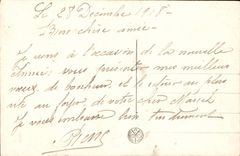 Le 28 Décembre 1918
Bien chère amie
Je viens à l'occasion de la nouvelle
année vous présenter mes meilleurs
vœux de bonheur et le retour au plus
vite au foyer de votre cher Marcel
Je vous embrasse bien tendrement